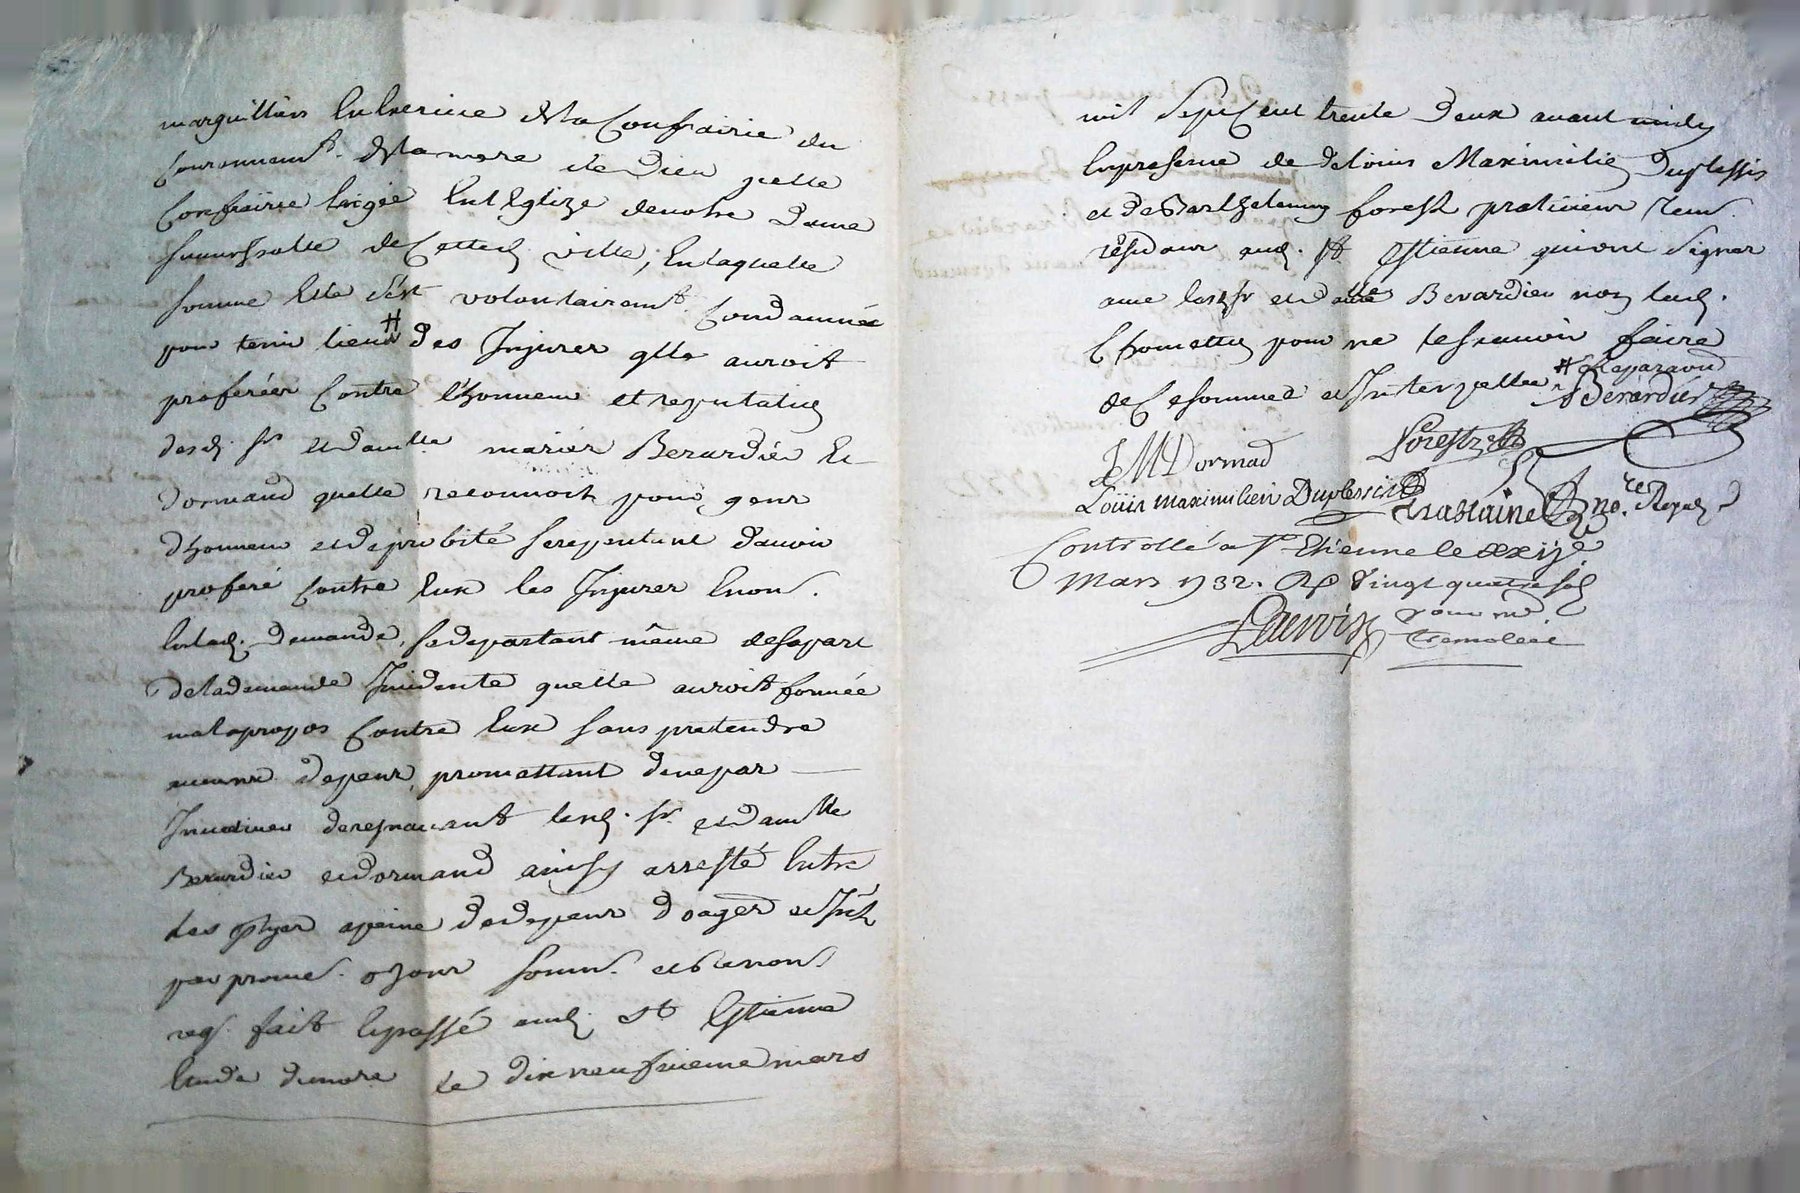 marguilliers de la Confrairie du
Couronnem.t de la mere de Dieu, jcelle
Confrairie Erigée En l'Eglize de notre Dame
de Cetted. ville, En laquelle
somme Elle s'est volontairem.t Condamnée
pour tenir lieu # des Injures qlle auroit
proferées Contre l'honneur et reputation
desd. Sr et dam.lle mariés Berardier Et
Dormand quelle reconnoit pour gens
d'honneur et de probité se repentant d'avoir
proferé Contre Eux les Injures Enon.
En lad. demande, se departant même de sa part
de la demande Incidente quelle auroit formée
mal apropos Contre Eux sans pretendre
aucuns depens, promettant de ne pas
lesd. Sr et dam.lle
Berardier et dormand ainsy arresté Entre
Les ptyes apeine de depens domges et Intz
par promes. obions soum. et renon.
req. fait Et passé aud. St Estienne
Etude du nore le dix neufvieme mars
mil Sept Cent trente Deux avant midy
En presence de de Louis Maximilien Duplessis
et de Barthelemy forest praticiens
residans aud. St Estienne qui ont Signer
avec lesd. sr et dlle Berardier non lad.
pour ne le sçavoir faire
de Ce sommée et Interpellée # Reparaon
Berardier
JM Dormad Forest
Loüis Maximilien Duplessis no.re Royal
Controllé a St Etienne le xxije
Mars 1732. R vingt quatre sols